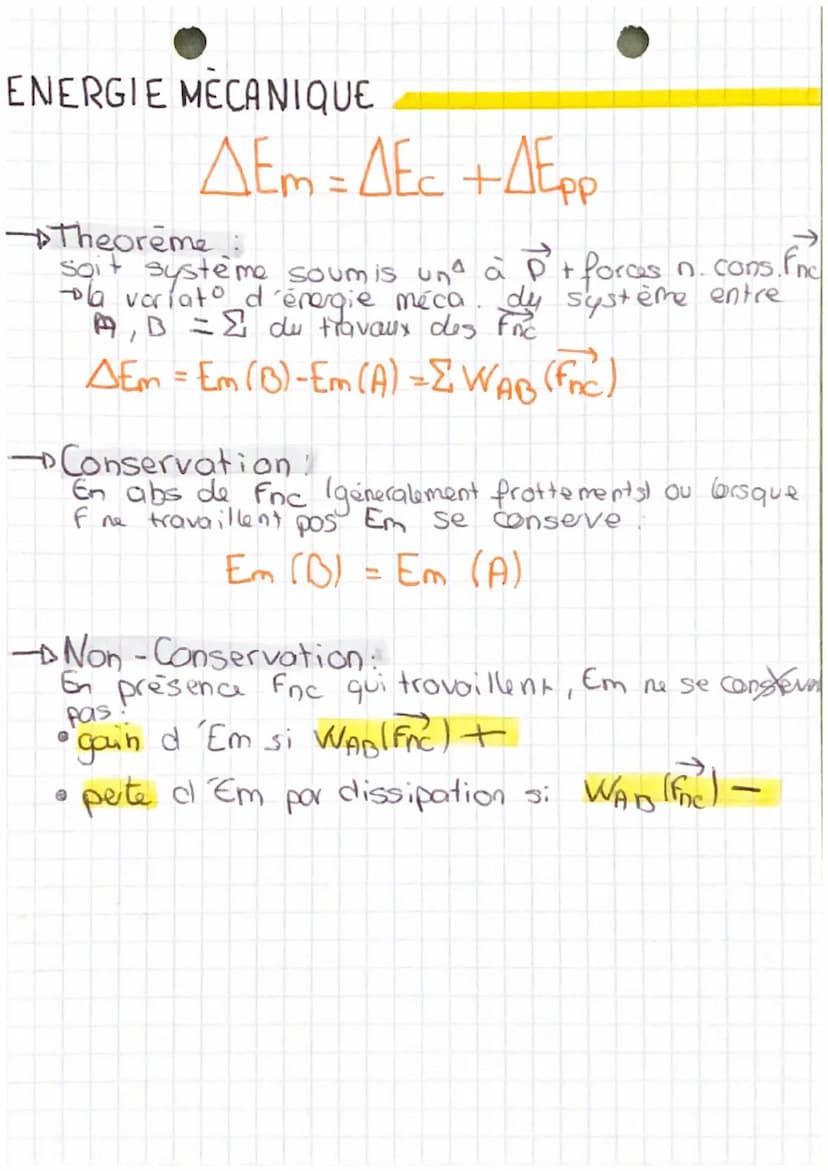 ENERGIE MÈCANIQUE
ΔEm = ΔEc + ΔEpp
→ Theorème :
soit système soumis unᐞ à P⃗ + forces n. cons. F⃗nc
→ la variat° d'énergie méca. du système entre
A, B = Σ du travaux des F⃗nc
ΔEm = Em(B) - Em(A) = Σ W_AB (F⃗nc)
→ Conservation :
En abs de Fnc (géneralement frottements) ou lorsque
F ne travaillent pas Em se conserve :
Em (B) = Em (A)
→ Non-Conservation :
En présence Fnc qui travaillent, Em ne se conserve
pas :
• gain d'Em si W_AB (F⃗nc) +
• perte d'Em par dissipation si W_AB (F⃗nc) -